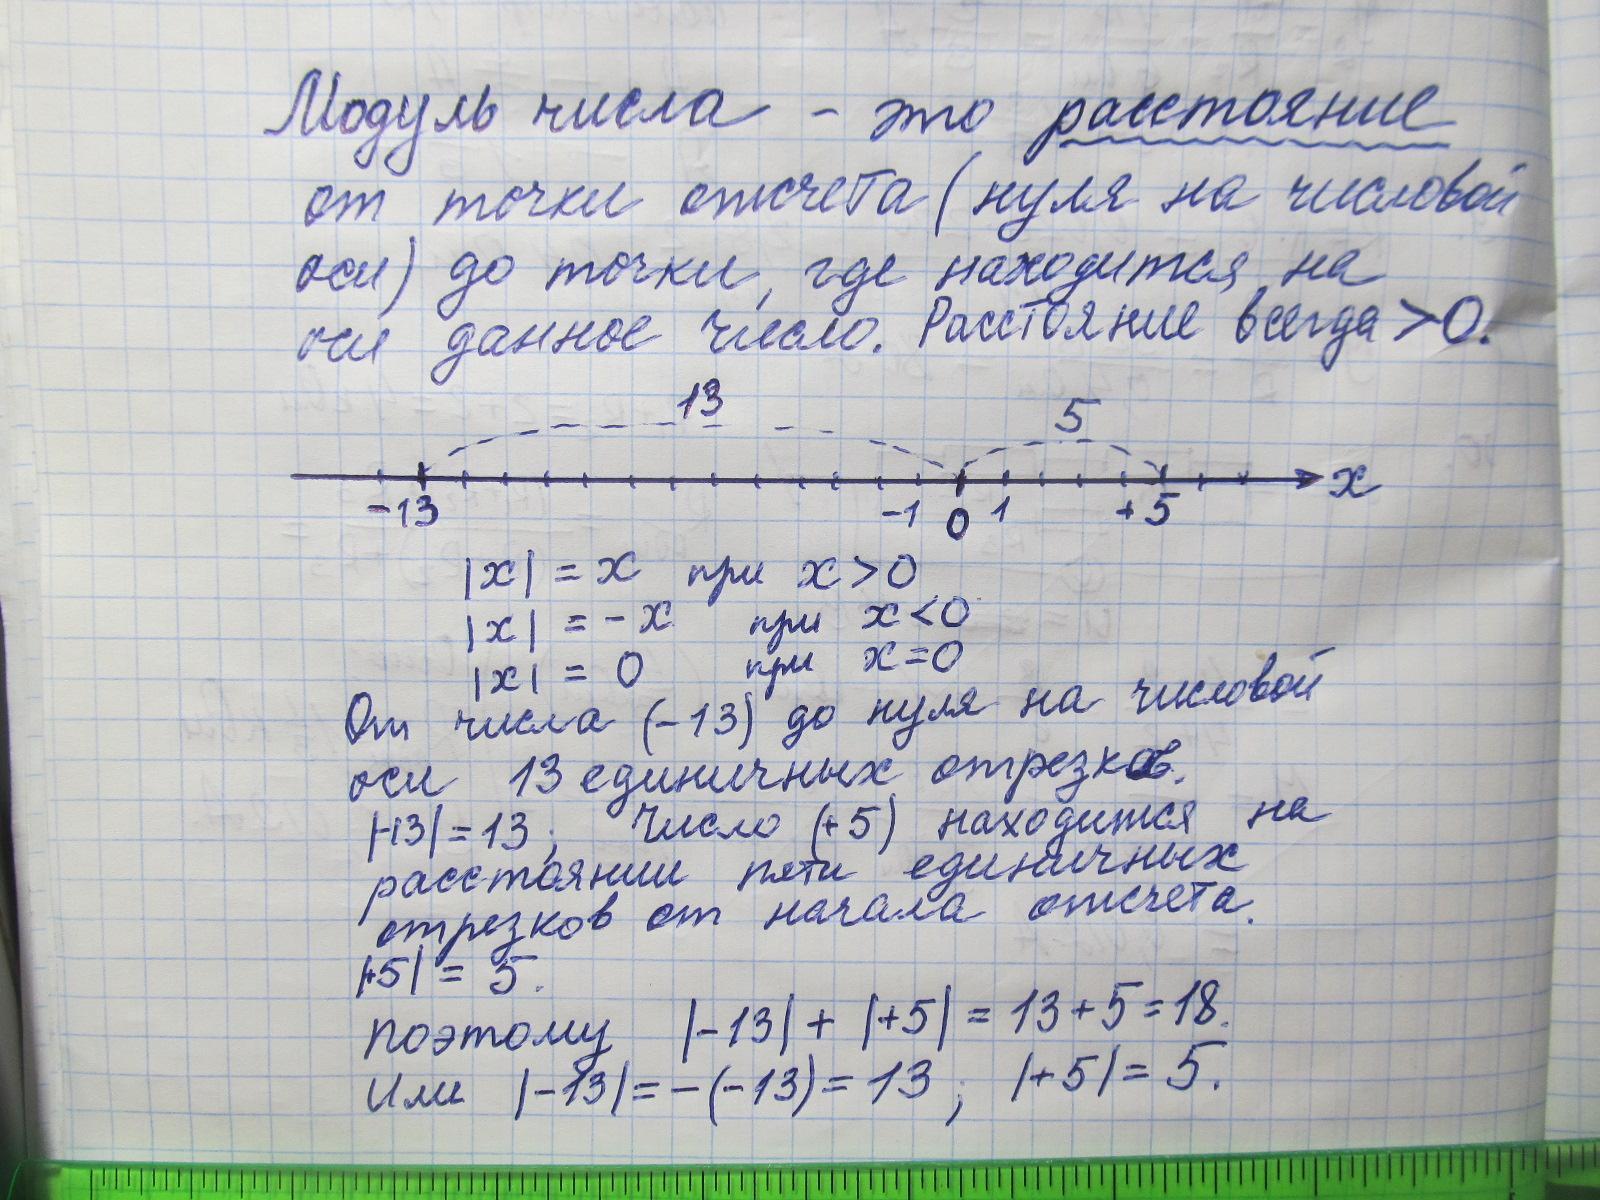 Модуль числа - это расстояние
от точки отсчета (нуля на числовой
оси) до точки, где находится на
оси данное число. Расстояние всегда >0.
13 5
-13 -1 0 1 +5 x
|x| = x при x>0
|x| = -x при x<0
|x| = 0 при x=0
От числа (-13) до нуля на числовой
оси 13 единичных отрезков.
|-13|=13; Число (+5) находится на
расстоянии пяти единичных
отрезков от начала отсчета.
|+5| = 5.
Поэтому |-13| + |+5| = 13+5=18.
Или |-13|=-(-13)=13; |+5|=5.